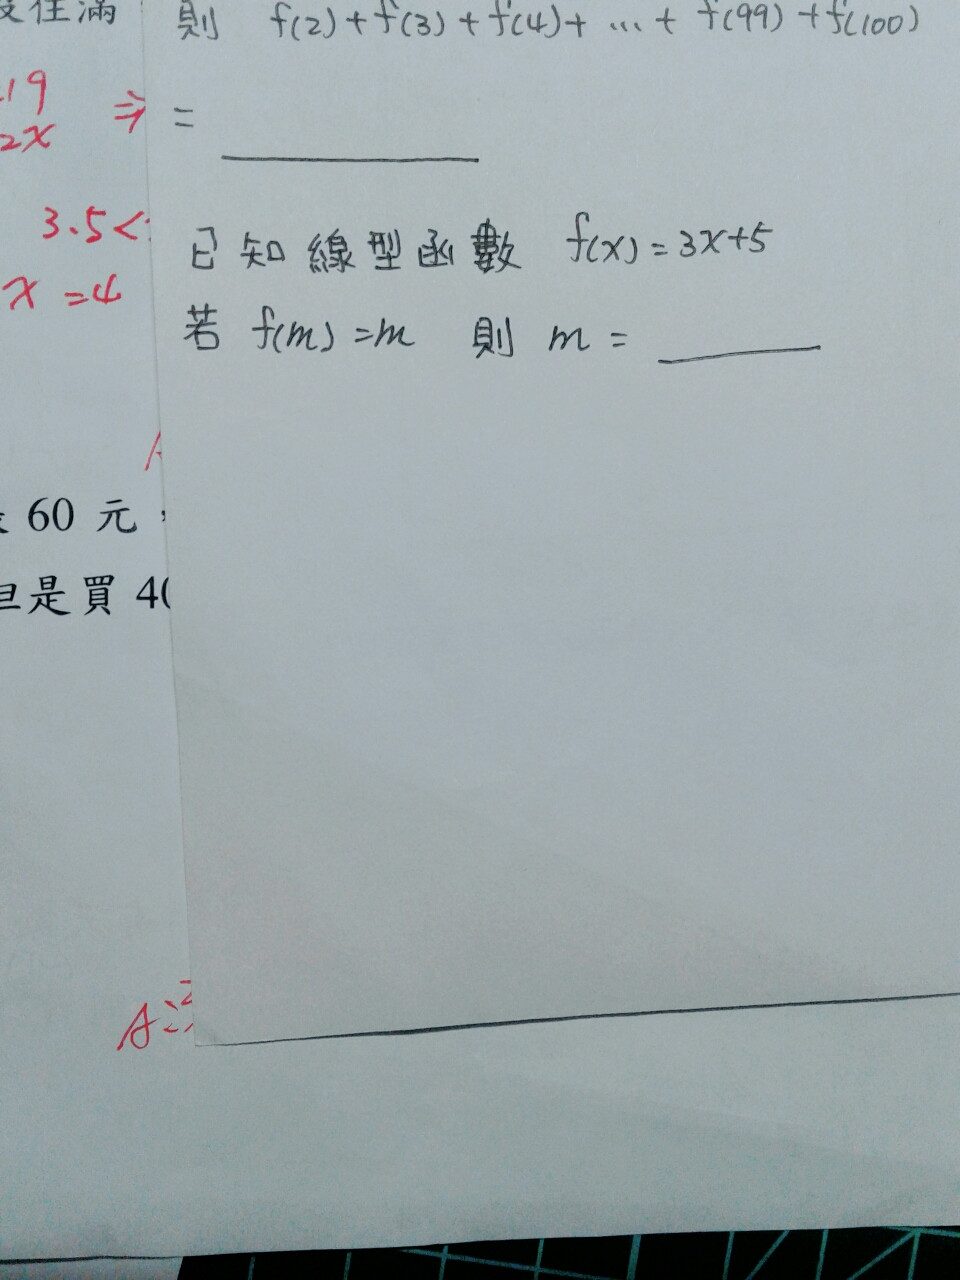 住滿
則 f(2)+f(3)+f(4)+ ... + f(99)+f(100)
19
2x ⇒
=
3.5<
x =4
已知線型函數 f(x)=3x+5
若 f(m)=m 則 m = ______
60 元，
但是買 40
A: